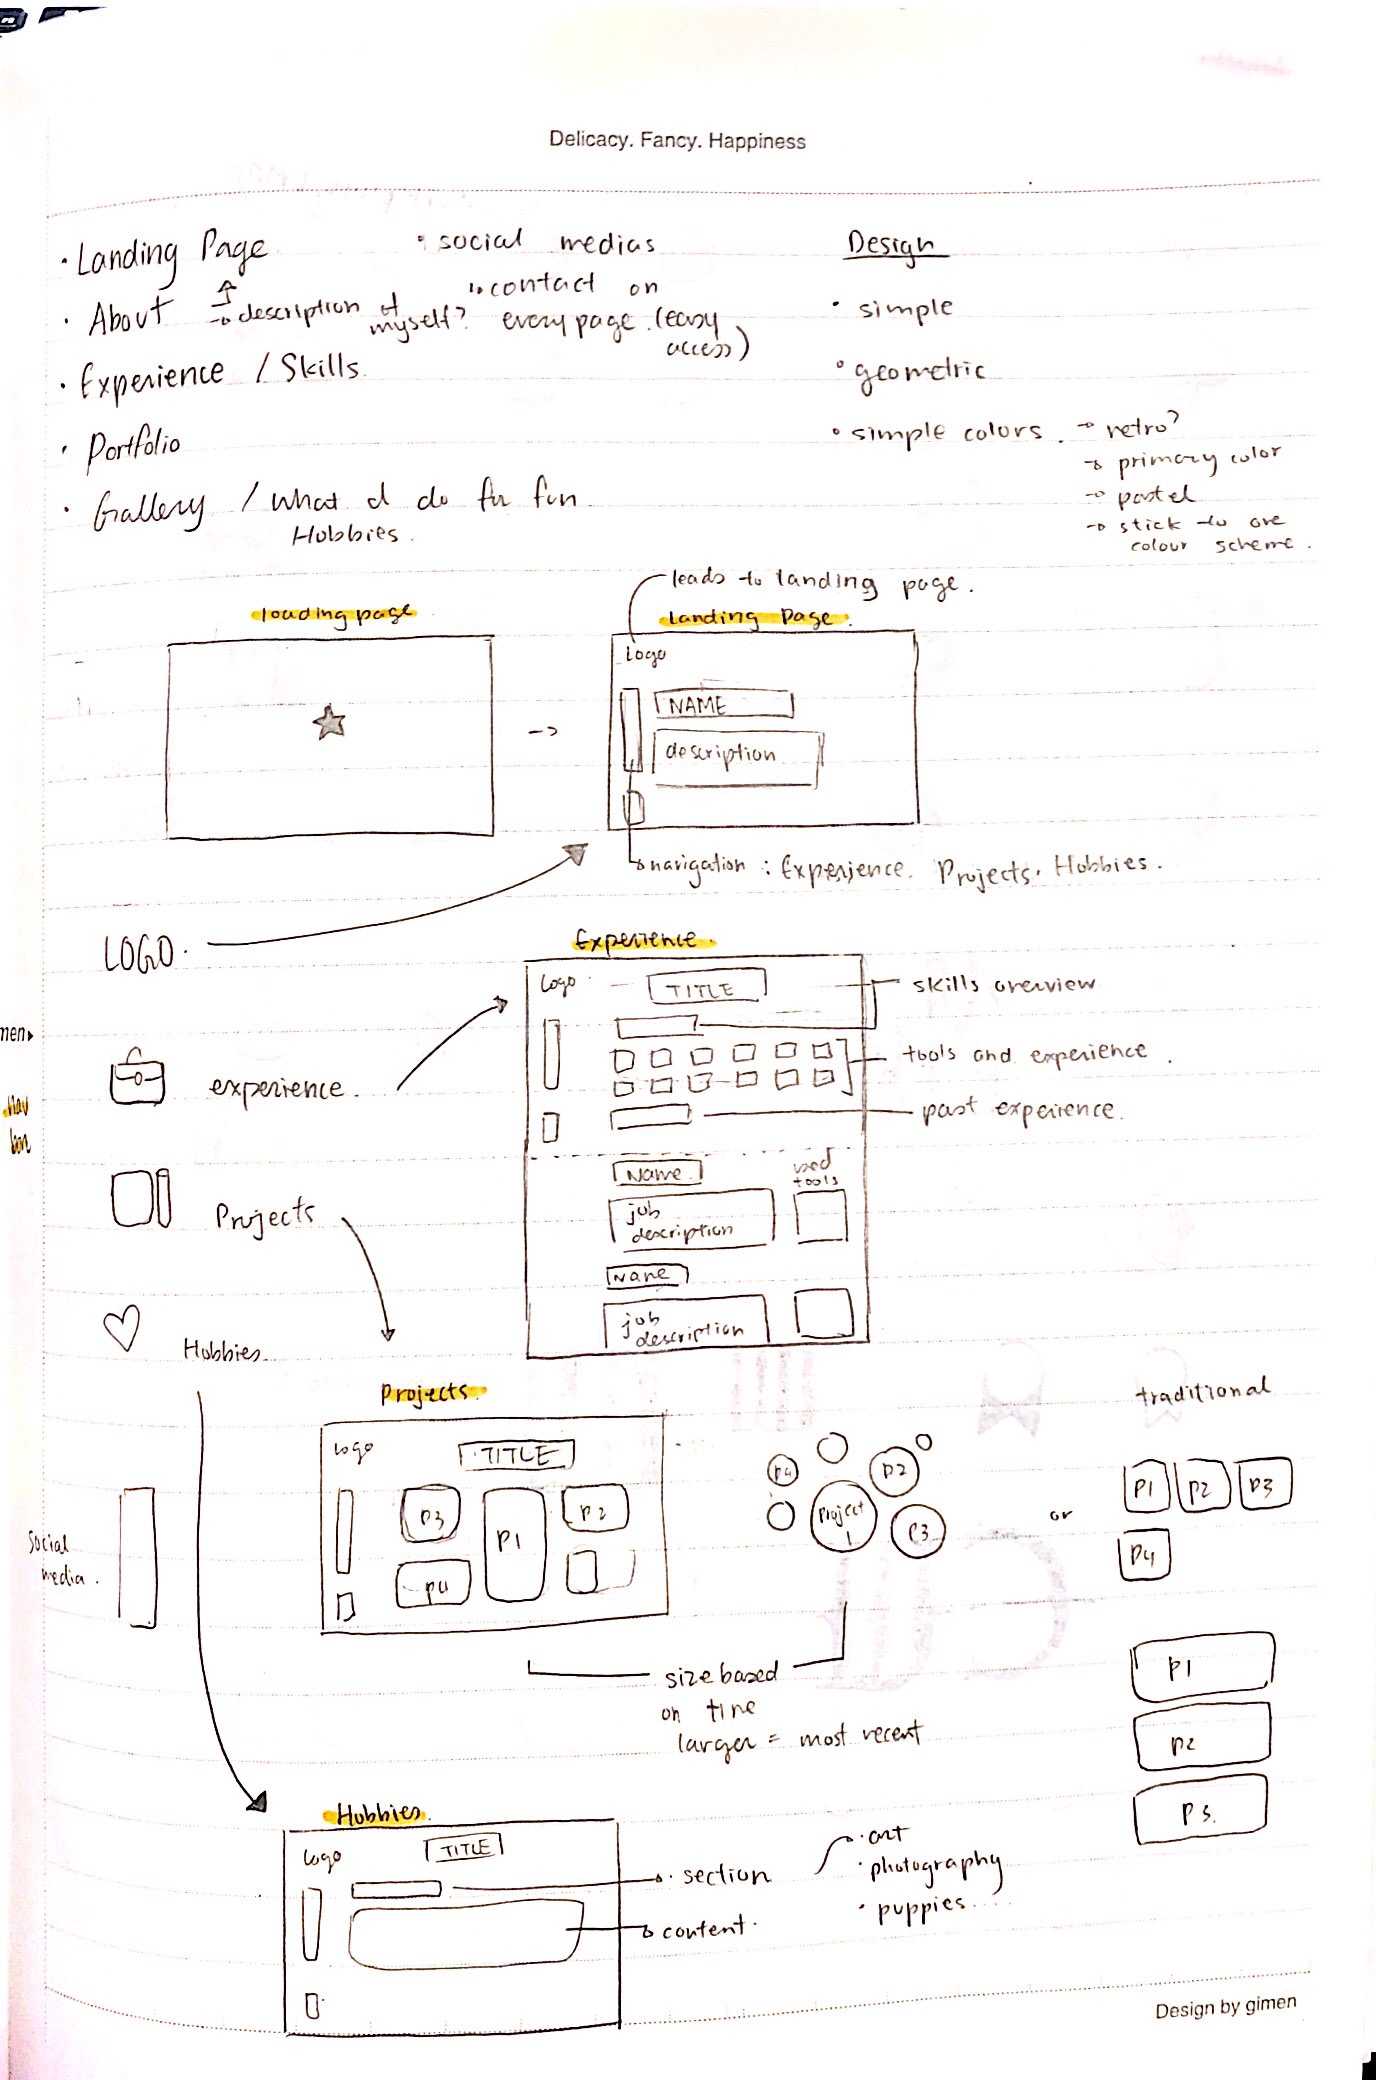 Delicacy. Fancy. Happiness
· Landing Page
· About → description of myself?
· Experience / Skills
· Portfolio
· Gallery / what I do for fun
Hobbies.
· social medias
contact on
every page. (easy
access)
Design
· simple
· geometric
· simple colors. → retro?
→ primary color
→ pastel
→ stick to one
colour scheme.
loading page
→
leads to landing page.
Landing Page.
Logo
NAME
description
navigation : Experience. Projects. Hobbies.
LOGO.
experience.
Projects
Hobbies.
men
Nav
social
media.
Experience.
Logo
TITLE
skills overview
tools and experience.
past experience.
Name
used
tools
job
description
Name
job
description
Projects.
Logo
TITLE
P3
P1
P2
P4
P4
P2
Project
1
P3
or
traditional
P1 P2 P3
P4
P1
P2
P3.
size based
on time
larger = most recent
Hobbies.
Logo
TITLE
· section
· art
· photography
· puppies....
content.
Design by gimen